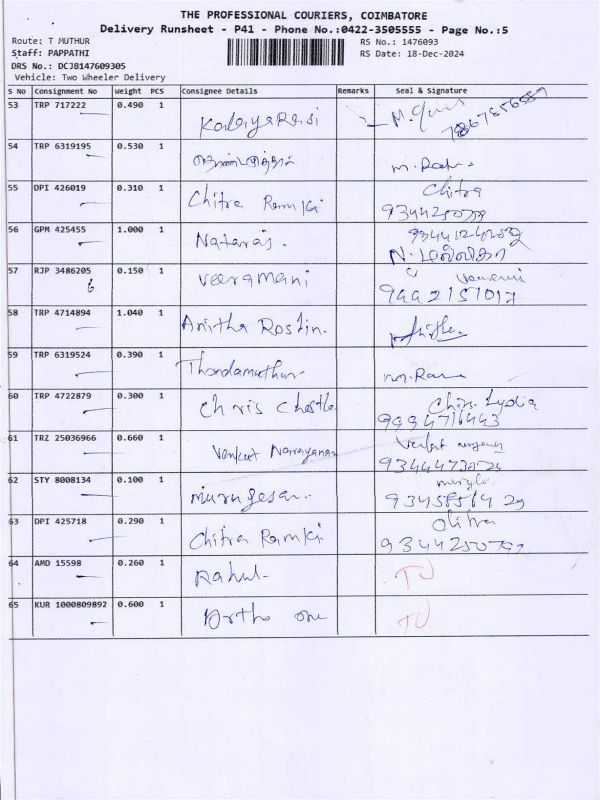 THE PROFESSIONAL COURIERS, COIMBATORE
Delivery Runsheet - P41 - Phone No.:0422-3505555 - Page No.:5
Route: T MUTHUR RS No.: 1476093
Staff: PAPPATHI RS Date: 18-Dec-2024
DRS No.: DCJB147609305
Vehicle: Two Wheeler Delivery
S No Consignment No Weight PCS Consignee Details Remarks Seal & Signature
53 TRP 717222 0.490 1
54 TRP 6319195 0.530 1
55 DPI 426019 0.310 1 Chitra Ramki Chitra
56 GPM 425455 1.000 1 Nataraj. N. மல்லிகா
57 RJP 3486205 0.150 1 Veeramani
6 9442151017
58 TRP 4714894 1.040 1 Anitha Roslin.
59 TRP 6319524 0.390 1 Thondamuthur
60 TRP 4722879 0.300 1 Chris Lydia
9994716443
61 TRZ 25036966 0.660 1 Venkat Narayanan Venkat
62 STY 8008134 0.100 1 Murugesan.
63 DPI 425718 0.290 1 Chitra Ramki Chitra
64 AMD 15598 0.260 1 Rahul. TJ
65 KUR 1000809892 0.600 1 Ortho one TJ